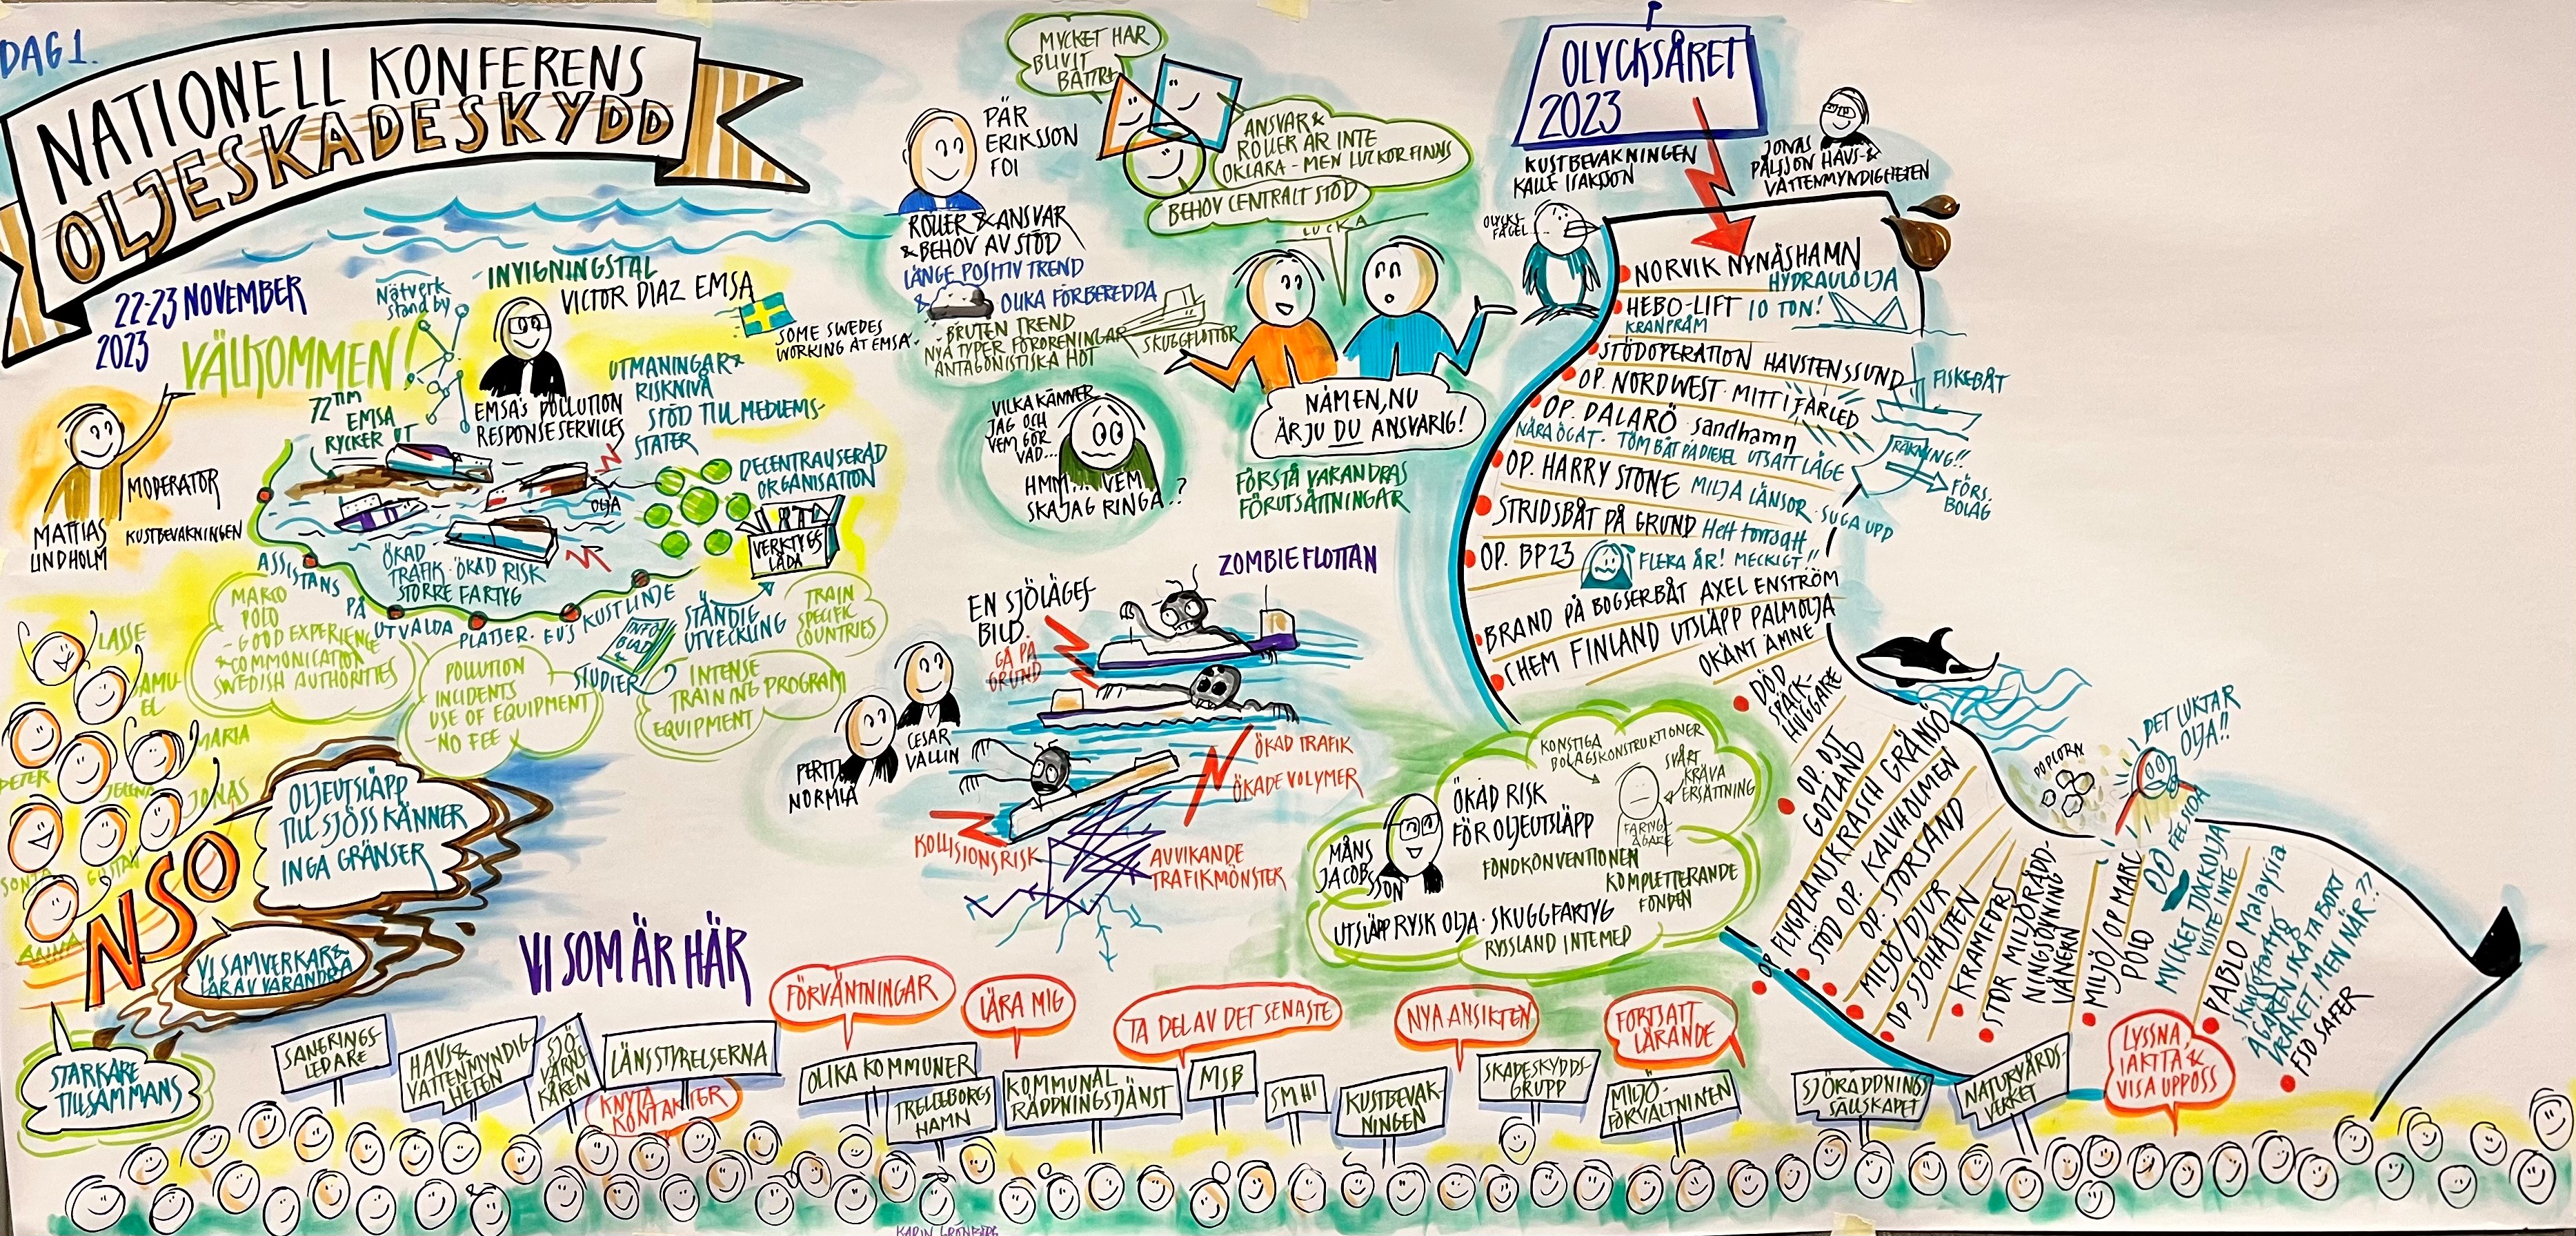 DAG 1.
NATIONELL KONFERENS
OLJESKADESKYDD
22-23 NOVEMBER
2023
VÄLKOMMEN!
MODERATOR
MATTIAS
LINDHOLM
KUSTBEVAKNINGEN
Nätverk
stand by
INVIGNINGSTAL
VICTOR DIAZ EMSA
SOME SWEDES
WORKING AT EMSA
72 TIM
EMSA
RYCKER UT
EMSA'S POLLUTION
RESPONSE SERVICES
UTMANINGAR &
RISKNIVÅ
STÖD TILL MEDLEMS-
STATER
DECENTRALISERAD
ORGANISATION
VERKTYGS
LÅDA
OLJA
ÖKAD
TRAFIK · ÖKAD RISK
STÖRRE FARTYG
ASSISTANS
PÅ
UTVALDA
PLATSER · EU'S
KUSTLINJE
STÄNDIG
UTVECKLING
INFO
BLAD
&
STUDIER
TRAIN
SPECIFIC
COUNTRIES
MARCO
POLO
- GOOD EXPERIENCE
& COMMUNICATION
SWEDISH AUTHORITIES
POLLUTION
INCIDENTS
USE OF EQUIPMENT
- NO FEE
INTENSE
TRAINING PROGRAM
EQUIPMENT
LASSE
SAMU-
EL
MARIA
PETER
JELENA
JONAS
SONJA
GUSTAV
ANNA
NSO
OLJEUTSLÄPP
TILL SJÖSS KÄNNER
INGA GRÄNSER
VI SAMVERKAR &
LÄR AV VARANDRA
STARKARE
TILLSAMMANS
PÄR
ERIKSSON
FOI
ROLLER & ANSVAR
& BEHOV AV STÖD
LÄNGE POSITIV TREND
& OLIKA FÖRBEREDDA
BRUTEN TREND
NYA TYPER FÖRORENINGAR
ANTAGONISTISKA HOT
SKUGGFLOTTOR
MYCKET HAR
BLIVIT
BÄTTRE
ANSVAR &
ROLLER ÄR INTE
OKLARA - MEN LUCKOR FINNS
BEHOV CENTRALT STÖD
LUCKA
NÄMEN, NU
ÄR JU DU ANSVARIG!
FÖRSTÅ VARANDRAS
FÖRUTSÄTTNINGAR
VILKA KÄNNER
JAG OCH
VEM GÖR
VAD...
HMM... VEM
SKA JAG RINGA..?
ZOMBIEFLOTTAN
EN SJÖLÄGES-
BILD
GÅ PÅ
GRUND
PERTTI
NORMIA
CESAR
VALLIN
KOLLISIONSRISK
ÖKAD TRAFIK
ÖKADE VOLYMER
AVVIKANDE
TRAFIKMÖNSTER
MÅNS
JACOBSSON
ÖKAD RISK
FÖR OLJEUTSLÄPP
KONSTIGA
BOLAGSKONSTRUKTIONER
SVÅRT
KRÄVA
ERSÄTTNING
FARTYGS-
ÄGARE
FONDKONVENTIONEN
KOMPLETTERANDE
FONDEN
UTSLÄPP RYSK OLJA · SKUGGFARTYG
RYSSLAND INTE MED
OLYCKSÅRET
2023
KUSTBEVAKNINGEN
KALLE ISAKSSON
JONAS
PÅLSSON HAVS- &
VATTENMYNDIGHETEN
OLYCKS-
FÅGEL
NORVIK NYNÄSHAMN
HYDRAULOLJA
HEBO-LIFT 10 TON!
KRANPRÅM
STÖDOPERATION HAVSTENSSUND
FISKEBÅT
OP. NORDWEST · MITT I FARLED
OP. DALARÖ sandhamn
NÄRA ÖGAT · TÖM BÅT PÅ DIESEL UTSATT LÄGE
OP. HARRY STONE MILJÖ LÄNSOR · SUGA UPP
RÄKNING!!
FÖRS.
BOLAG
STRIDSBÅT PÅ GRUND Helt torrsatt
OP. BP23 FLERA ÅR! MECKIGT!!
BRAND PÅ BOGSERBÅT AXEL ENSTRÖM
CHEM FINLAND UTSLÄPP PALMOLJA
OKÄNT ÄMNE
DÖD
SPÄCK-
HUGGARE
OP. OST
GOTLAND
OP FLYGPLANSKRASCH GRÄNSÖ
STÖD OP. KALVHOLMEN
OP. STORSAND
MILJÖ/DJUR
OP SJÖHÄSTEN
KRAMFORS
STOR MILJÖRÄDD-
NINGSÖVNING
VÄNERN
MILJÖ/OP MARCO
POLO
POPCORN
DET LUKTAR
OLJA!!
PÅ FEL SIDA
MYCKET TJOCKOLJA
VISSTE INTE
PABLO Malaysia
Skuggfartyg
ÄGAREN SKA TA BORT
VRAKET. MEN NÄR??
FSO SAFER
VI SOM ÄR HÄR
FÖRVÄNTNINGAR
LÄRA MIG
TA DEL AV DET SENASTE
NYA ANSIKTEN
FORTSATT
LÄRANDE
LYSSNA,
IAKTTA &
VISA UPP OSS
KNYTA
KONTAKTER
SANERINGS-
LEDARE
HAVS &
VATTENMYNDIG-
HETEN
SJÖ-
VÄRNS-
KÅREN
LÄNSSTYRELSERNA
OLIKA KOMMUNER
TRELLEBORGS
HAMN
KOMMUNAL
RÄDDNINGSTJÄNST
MSB
SMHI
KUSTBEVAK-
NINGEN
SKADESKYDDS-
GRUPP
MILJÖ-
FÖRVALTNINEN
SJÖRÄDDNINGS
SÄLLSKAPET
NATURVÅRDS-
VERKET
KARIN GRÖNBERG